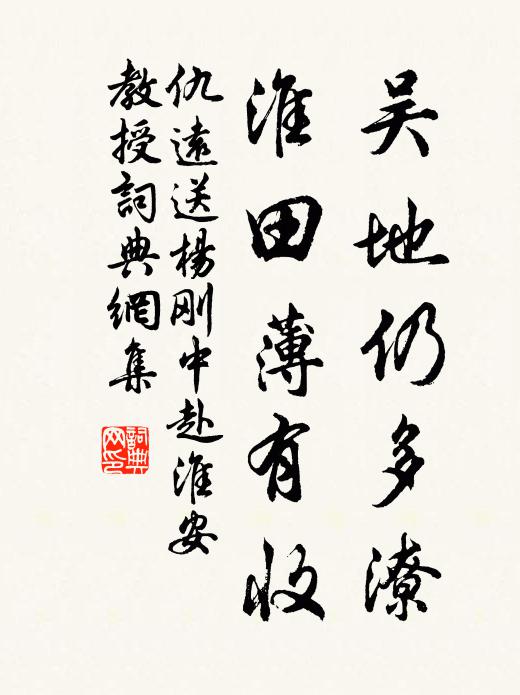 吴地仍多潦
淮田薄有收
仇遠送楊刚中赴淮安
教授詞典網集
詞典
网印